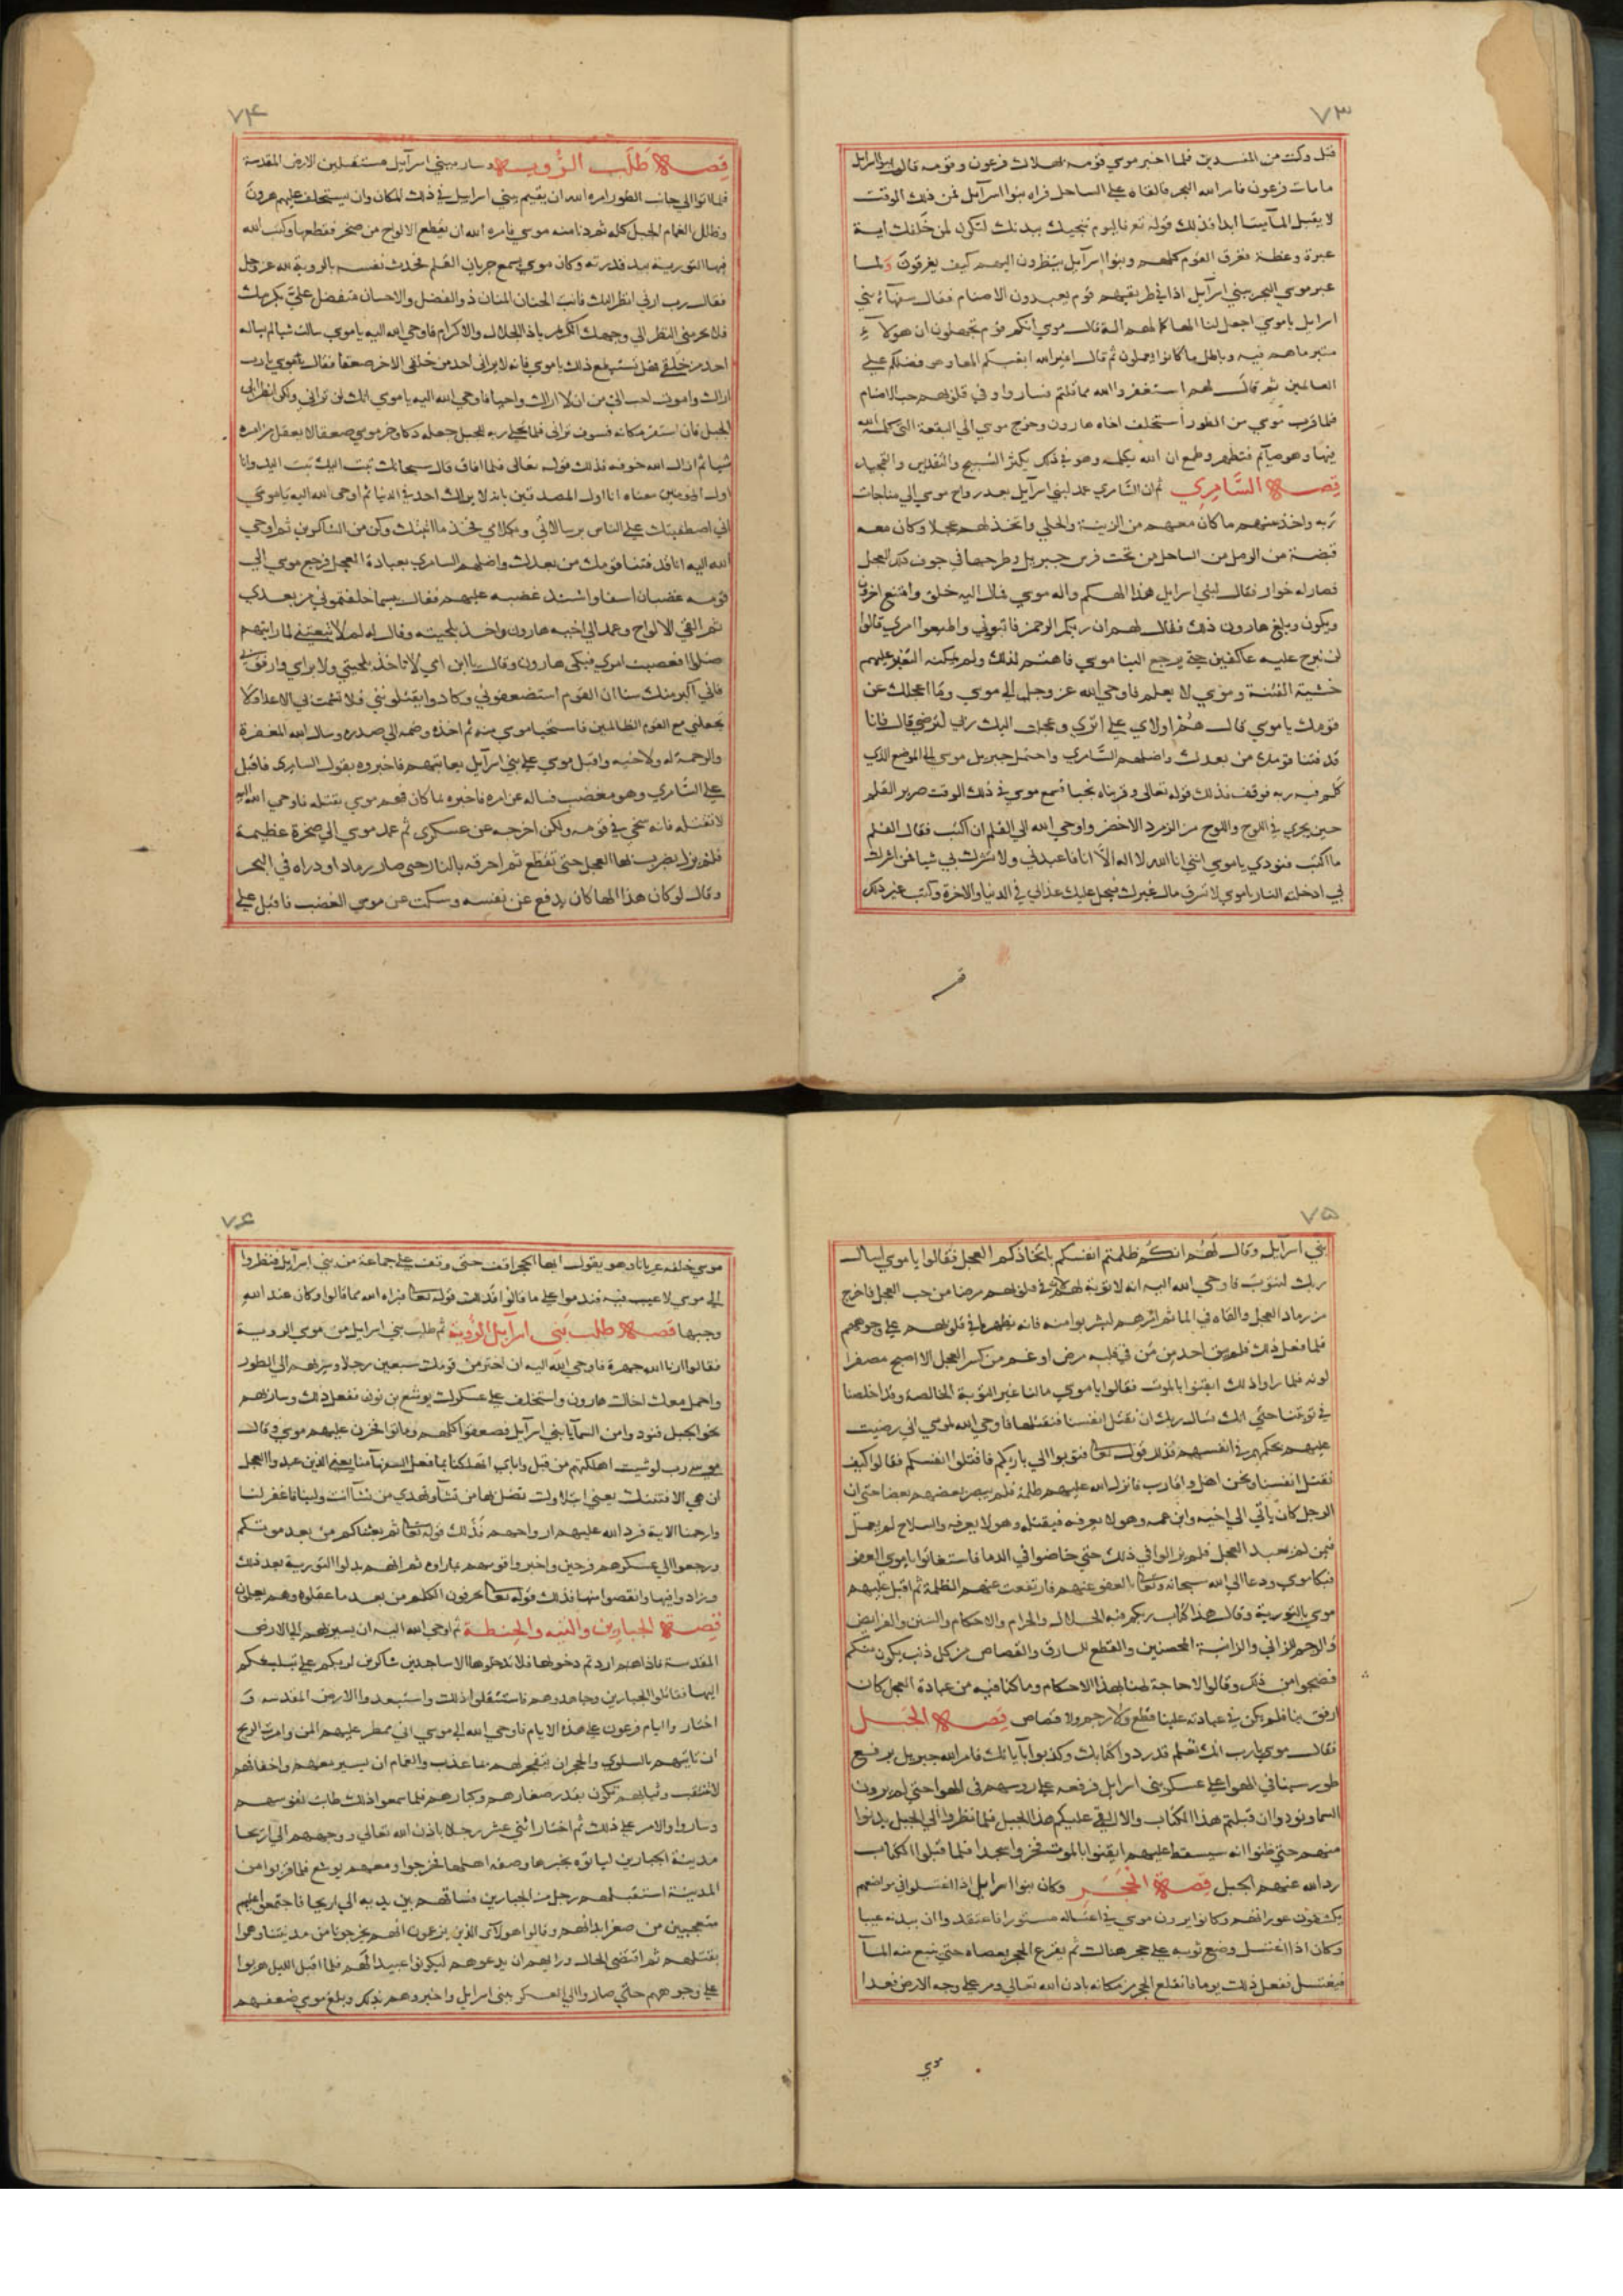 ٧٣
قبل وكنت من المفسدين فلما اخبر موسي قومه بهلاك فرعون وقومه قالوا بنوا اسرايل
ما مات فرعون فامر الله البحر فالقاه علي الساحل فراه بنوا اسرآيل فمن ذلك الوقت
لا يقبل المآ ميتا ابدا فذلك قوله تع فاليوم ننجيك ببدنك لتكون لمن خلفك اية
عبرة وعظة فغرق القوم كلهم وبنوا اسرآيل ينظرون اليهم كيف يغرقون ولما
عبر موسي البحر ببني اسرآيل اذا في طريقهم قوم يعبدون الاصنام فقال سفهاء بني
اسرايل يا موسي اجعل لنا الها كما لهم الهة قال موسي انكم قوم تجهلون ان هولآء
متبر ما هم فيه وباطل ما كانوا يعملون ثم قال اغير الله ابغيكم الها وهو فضلكم علي
العالمين ثم قال لهم استغفروا الله مما قلتم فساروا وفي قلوبهم حب الاصنام
فلما قرب موسي من الطور استخلف اخاه هارون وخرج موسي الي البقعة التي كلمه الله
فيها وهو صآيم فتطهر وطمع ان الله يكلمه وهو في ذلك يكثر التسبيح والتقديس والتمجيد
قصة السَّامِري ثم ان السَّامري عمد لبني اسرآيل بعد رواح موسي الي مناجات
ربه واخذ منهم ما كان معهم من الزينة والحلي واتخذ لهم عجلا وكان معه
قبضة من الرمل من الساحل من تحت فرس جبريل وطرحها في جوف ذلك العجل
فصار له خوار فقال لبني اسرايل هذا الهكم واله موسي فمال اليه خلق وامتنع اخرون
ويكون وبلغ هارون ذلك فقال لهم ان ربكم الرحمن فاتبعوني واطيعوا امري قالوا
لن نبرح عليه عاكفين حتي يرجع الينا موسي فاهتم لذلك ولم يمكنه التغير عليهم
خشية الفتنة وموسي لا يعلم فاوحي الله عز وجل الي موسي وما اعجلك عن
قومك يا موسي قال هُم اولاي علي اثري وعجلت اليك رب لترضي قال فانا
قد فتنا قومك من بعدك واضلهم السَّامري واحتمل جبريل موسي الي الموضع الذي
كلم فيه ربه فوقف فذلك قوله تعالي وقربناه نجيا فسمع موسي في ذلك الوقت صرير القلم
حين يجري في اللوح واللوح من الزمرد الاخضر واوحي الله الي القلم ان اكتب فقال القلم
ما اكتب فنودي يا موسي انني انا الله لا اله الا انا فاعبدني ولا تشرك بي شيا فمن اشرك
بي ادخلته النار يا موسي لا تسرق مال غيرك فيحل عليك عذابي في الدنيا والاخرة وكتب غير ذلك
٧۴
قصة طَلَب الرُّويه وسار ببني اسرآيل مستقبلين الارض المقدسة
فلما اتوا الي جانب الطور امره الله ان يقيم ببني اسرايل في ذلك المكان وان يستخلف عليهم هرون
وظلل الغمام الجبل كله ثم دنا منه موسي فامره الله ان يقطع الالواح من صخر فقطعها وكتب الله
فيها التورية بيد قدرته وكان موسي يسمع جريان القلم فحدث نفسه بالروية لله عز وجل
فقال رب ارني انظر اليك فانت الحنان المنان ذو الفضل والاحسان فتفضل عليَّ بكرمك
فلا تحرمني النظر الي وجهك الكريم يا ذا الجلال والاكرام فاوحي الله اليه يا موسي سالت شيا لم يساله
احد من خلقي فهل تستطيع ذلك يا موسي فانه لا يراني احد من خلقي الا خر صعقا فقال موسي يا رب
اراك واموت احب الي من ان لا اراك واحيا فاوحي الله اليه يا موسي انك لن تراني ولكن انظر الي
الجبل فان استقر مكانه فسوف تراني فلما تجلي ربه للجبل جعله دكا وخر موسي صعقا لا يعقل من امره
شيا ثم ازال الله خوفه فذلك قوله تعالي فلما افاق قال سبحانك تبت اليك تبت اليك وانا
اول المومنين معناه انا اول المصدقين بانه لا يراك احد في الدنيا ثم اوحي الله اليه يا موسي
اني اصطفيتك علي الناس برسالاتي وبكلامي فخذ ما اتيتك وكن من الشاكرين ثم اوحي
الله اليه انا قد فتنا قومك من بعدك واضلهم السامري بعبادة العجل فرجع موسي الي
قومه غضبان اسفا واشتد غضبه عليهم فقال بيسما خلفتموني من بعدي
ثم القي الالواح وعمد الي اخيه هارون واخذ بلحيته وقال له لم لا تتبعني لما رايتهم
ضلوا افعصيت امري فبكي هارون وقال يا ابن امي لا تاخذ بلحيتي ولا براسي وارفق بي
فاني اكبر منك سنا ان القوم استضعفوني وكادوا يقتلونني فلا تشمت بي الاعدا ولا
تجعلني مع القوم الظالمين فاستحيا موسي منه ثم اخذه وضمه الي صدره وسال الله المغفرة
والرحمة له ولاخيه واقبل موسي علي بني اسرآيل يعاتبهم فاخبروه بقول السامري فاقبل
علي السَّامري وهو مغضب فساله عن امره فاخبره بما كان فهم موسي بقتله فاوحي الله اليه
لا تقتله فانه سخي في قومه ولكن اخرجه عن عسكري ثم عمد موسي الي صخرة عظيمة
فلم يزل يضرب بها العجل حتي تقطع ثم احرقه بالنار حتي صار رمادا وذراه في البحر
وقال لو كان هذا الها كان يدفع عن نفسه وسكت عن موسي الغضب فاقبل علي
٧۵
بني اسرآيل وقال لَهُم انكُم ظلمتم انفسكم باتخاذكم العجل فقالوا يا موسي اسال
ربك لنتوب فاوحي الله اليه انه لا توبة لهم لان في قلوبهم مرضا من حب العجل فاخرج
من رماد العجل والقاه في الما ثم امرهم ليشربوا منه فانه يظهر ما في قلوبهم علي وجوههم
فلما فعل ذلك فلم يبق احد من مَن في قلبه مرض او غم من كسر العجل الا اصبح مصفرا
لونه فلما راوا ذلك ايقنوا بالموت فقالوا يا موسي ما لنا غير التوبة الخالصة وقد اخلصنا
في توبتنا حتي انك تسال ربك ان نقتل انفسنا فنقتلها فاوحي الله لموسي اني رضيت
عليهم بحكمهم في انفسهم فذلك قوله تعا فتوبوا الي باريكم فاقتلوا انفسكم فقالوا كيف
نقتل انفسنا ونحن اهل واقارب فانزل الله عليهم ظلمة فلم يبصر بعضهم بعضا حتي ان
الرجل كان ياتي الي اخيه وابن عمه وهو لا يعرفه فيقتله وهو لا يعرفه والسلاح لم يعمل
فيمن لم يعبد العجل فلم يزالوا في ذلك حتي خاضوا في الدما فاستغاثوا يا موسي العفو
فبكا موسي ودعا الي الله سبحانه وتعا بالعفو عنهم فارتفعت عنهم الظلمة ثم اقبل عليهم
موسي بالتورية وقال هذا كتاب ربكم فيه الحلال والحرام والاحكام والسنن والفرايض
والرجم للزاني والزانية المحصنين والقطع للسارق والقصاص من كل ذنب يكون منكم
فضجوا من ذلك وقالوا لا حاجة لهنا بهذا الاحكام وما كنا فيه من عبادة العجل كان
ارفق بنا فلم يكن في عبادته علينا قطع ولا رجم ولا قصاص قصة الجَبَل
فقال موسي يا رب انك تعلم قد ردوا كتابك وكذبوا بآياتك فامر الله جبريل برفع
طور سينا في الهوا علي عسكر بني اسرايل فرفعه علي روسهم في الهوا حتي لم يرون
السما ونودوا ان قبلتم هذا الكتاب والا القي عليكم هذا الجبل فلما نظروا الي الجبل يدنوا
منهم حتي ظنوا انه سيسقط عليهم ايقنوا بالموت فخروا سجدا فلما قبلوا الكتاب
رد الله عنهم الجبل قصة الحَجَرِ وكان بنوا اسرايل اذا اغتسلوا في مواضعهم
يكشفون عوراتهم وكانوا يرون موسي في اغتساله مستورا فاعتقدوا ان ببدنه عيبا
وكان اذا اغتسل وضع ثوبه علي حجر هنالك ثم يقرع الحجر بعصاه حتي ينبع منه المآ
فيغتسل ففعل ذلك يوما فانقلع الحجر من مكانه باذن الله تعالي ومر علي وجه الارض فعدا
موسي
٧۶
موسي خلفه عريانا وهو يقول ايها الحجر اقف حتي وقف علي جماعة من بني اسرآيل فنظروا
الي موسي لا عيب فيه فندموا علي ما قالوا فذلك قوله تعا فبراه الله مما قالوا وكان عند الله
وجيها قصة طلب بَني اسرآيل الرُّوية ثم طلب بني اسرايل من موسي الروية
فقالوا ارنا الله جهرة فاوحي الله اليه ان اختر من قومك سبعين رجلا وسر بهم الي الطور
واحمل معك اخاك هارون واستخلف علي عسكرك يوشع بن نون ففعل ذلك وسار بهم
نحو الجبل فنودوا من السمآ يا بني اسرآيل فصعقوا كلهم وماتوا فحزن عليهم موسي وقال
موسي رب لو شيت اهلكتهم من قبل واياي اتهلكنا بما فعل السفهآ منا يعني الذين عبدوا العجل
ان هي الا فتنتك يعني ابتلاوك تضل بها من تشآ وتهدي من تشآ انت ولينا فاغفر لنا
وارحمنا الاية فرد الله عليهم ارواحهم فذلك قوله تعا ثم بعثناكم من بعد موتكم
ورجعوا الي عسكرهم فرحين واخبروا قومهم بما راوه ثم انهم بدلوا التورية بعد ذلك
وزادوا فيها وانقصوا منها فذلك قوله تعا يحرفون الكلم من بعد ما عقلوه وهم يعلمون
قصة الجبارين والتيه والحِنطة ثم اوحي الله اليه ان يسير بهم الي الارض
المقدسة فاذا هم اردتم دخولها فلا تدخلوها الا ساجدين شاكرين لربكم علي تبليغكم
اليها فقاتلوا الجبارين وجاهدوهم فاستثقلوا ذلك واستبعدوا الارض المقدسه و
اختاروا ايام فرعون علي هذه الايام فاوحي الله الي موسي اني ممطر عليهم المن وامرت الريح
ان تاتيهم بالسلوي والحجر ان يتفجر لهم ما عذب والغمام ان يسير معهم واخفافهم
لا تنقب وثيابهم تكون بقدر صغارهم وكبارهم فلما سمعوا ذلك طابت نفوسهم
وساروا والامر علي ذلك ثم اختار اثني عشر رجلا باذن الله تعالي ووجههم الي اريحا
مدينة الجبارين لياتوه بخبرها وصفة اهلها فخرجوا ومعهم يوشع فلما قربوا من
المدينة استقبلهم رجل من الجبارين فساقهم بين يديه الي اريحا فاجتمعوا عليهم
متعجبين من صغر ابدانهم وقالوا هولآى الذين يزعمون انهم يخرجونا من مدينتنا وهموا
بقتلهم ثم اقتضي الحال ورايهم ان يدعوهم ليكونوا عبيدا لهم فلما اقبل الليل هربوا
علي وجوههم حتي صاروا الي العسكر ببني اسرايل واخبروهم بذلك وبلغ موسي ضعفهم